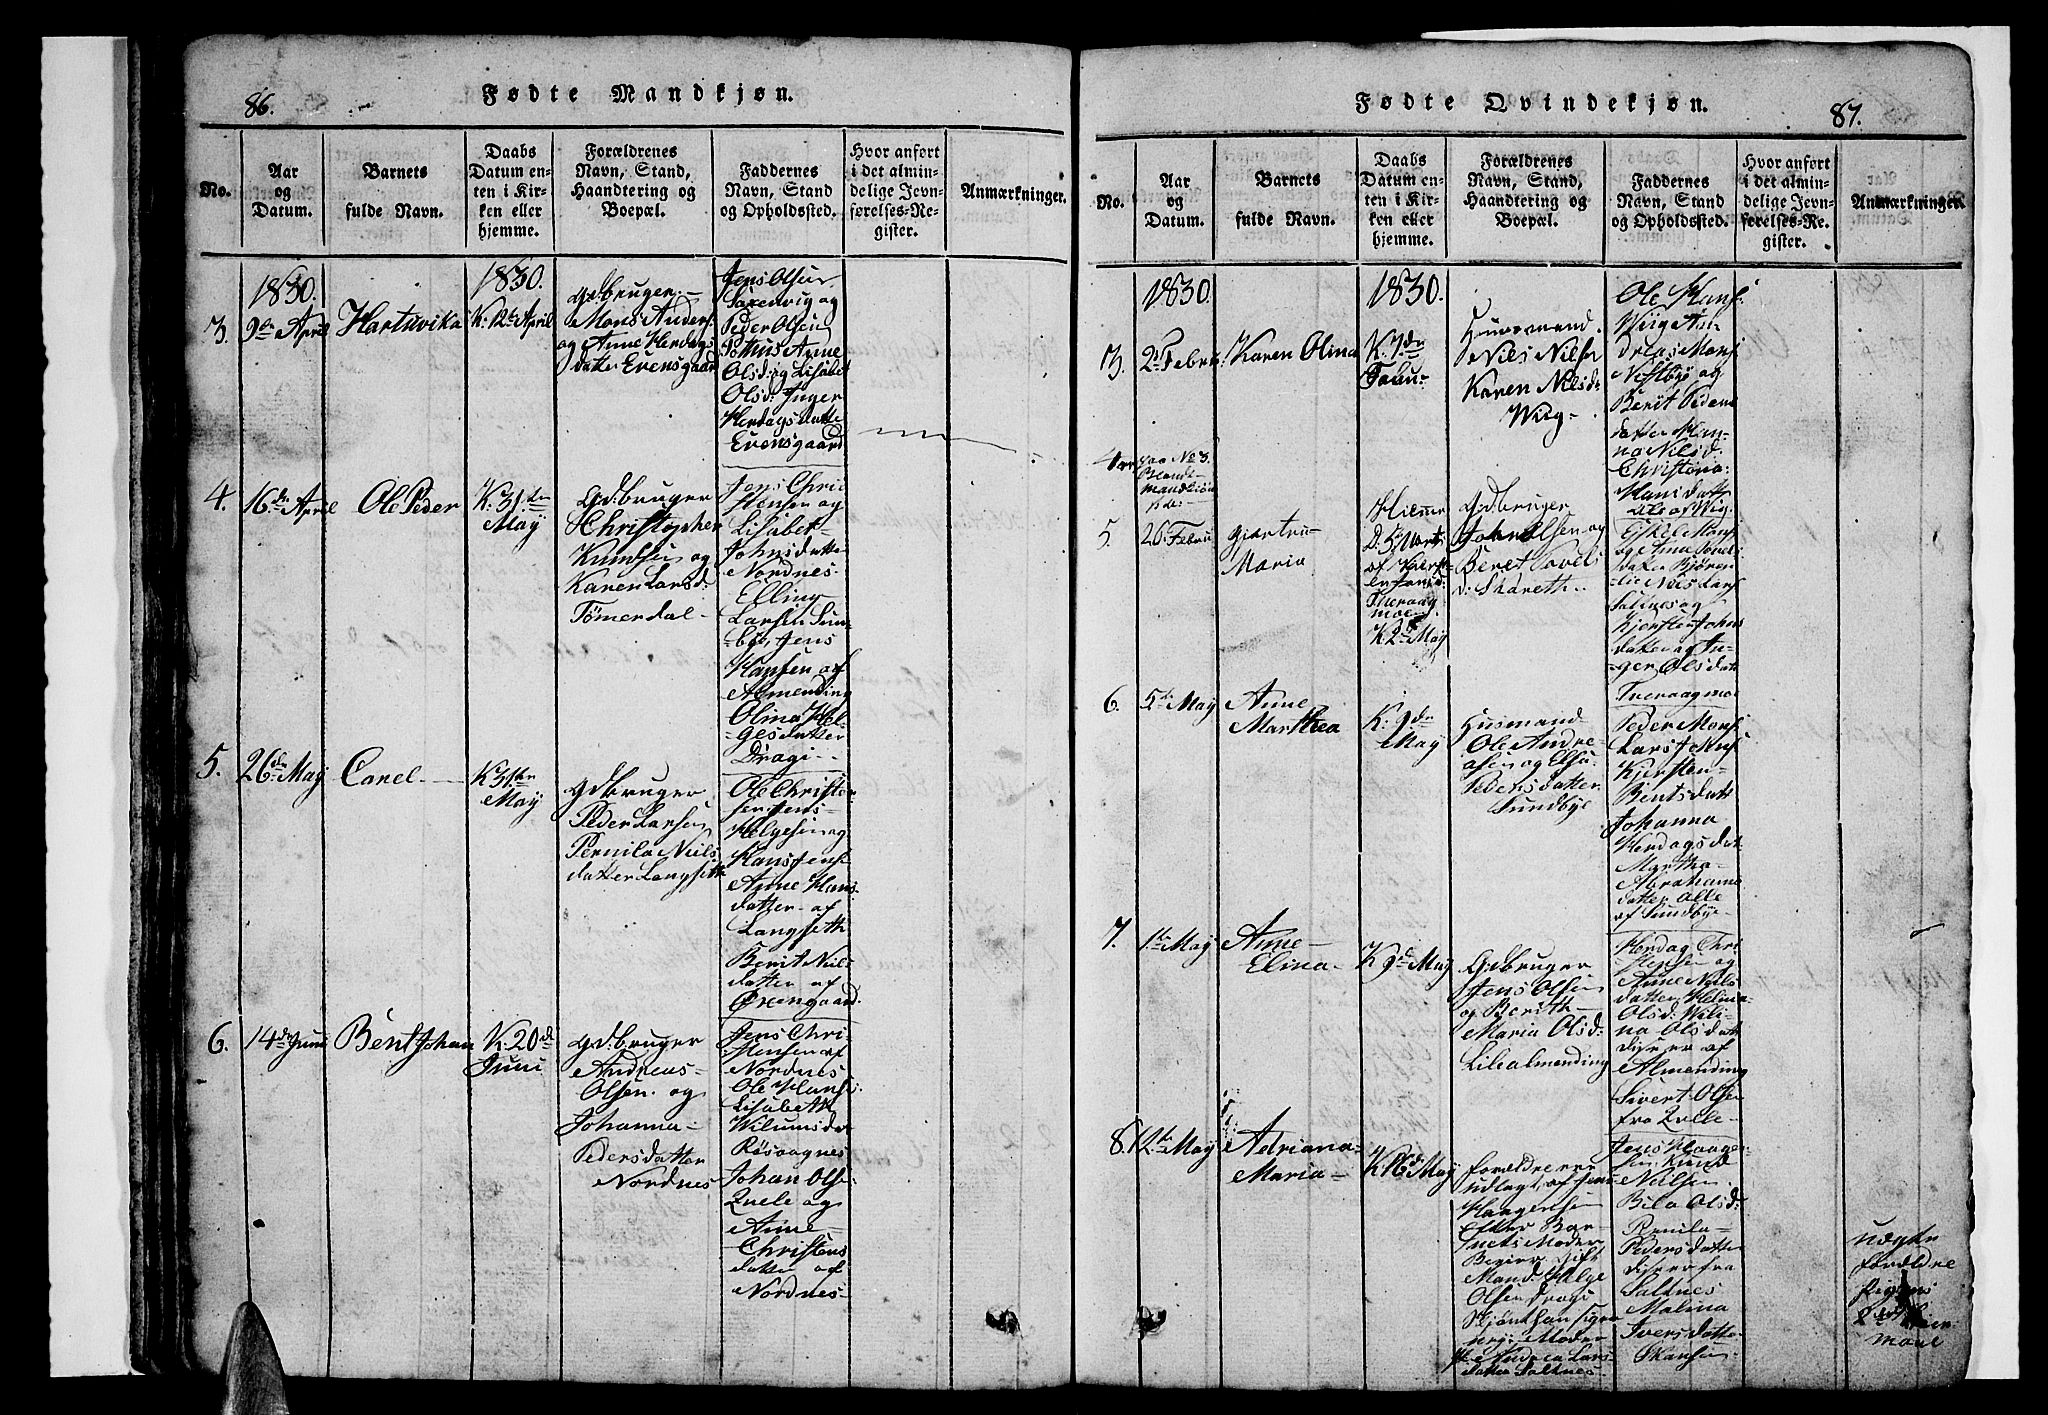 86.
Fødte Mandkjøn.
No.
Aar
og
Datum.
Barnets
fulde Navn.
Daabs
Datum en-
ten i Kir-
ken eller
hjemme.
Forældrenes
Navn, Stand,
Haandtering og
Boepæl.
Faddernes
Navn, Stand
og Opholdssted.
Hvor anført
i det almin-
delige Jevn-
førelses-Re-
gister.
Anmærkninger.
3.
1830.
9de April
Hartvika
1830.
K: 12te April
Gdbruger
Mons Anders:
og Anne Herdags
datter Evensgaard
Jens Olsen
Saxenvig og
Peder Olsen
Pothus Anne
Olsd: og Lisabet
Olsd: Inger
Herdagsdatte
Evensgaard
4.
16de April
Ole Peder
K: 31te
May
Gdbruger
Christopher
Knudsen og
Karen Larsd:
Tömerdal
Jens Chris
tensen og
Lisabet
Johnsdatte
Nordnes
Elling
Larsen Sun-
bye, Jens
Hansen af
Almending
Olina Hel-
gesdatter
Dragi
5.
26de May
Carel
K 31te
May
Gdbruger
Peder Larsen
Pernila Niels
datter Langseth
Ole Christen
sen Jens
Helgesen og
Hans Jens
Anne Hans
datter af
Langseth
Berit Niels
datter af
Øxengaard
6.
14de Juni
Bent Johan
K: 20de
Juni
Gdbruger
Andreas
Olsen og
Johanna
Pedersdatter
Nordnes
Jens Chri-
stensen af
Nordnes
Ole Hans:
Lisabeth
Wilumsdat
Røsaagnes
Johan Olse
Qvele og
Anne
Christens
datter af
Nordnes
87.
Fødte Qvindekjøn.
No.
Aar
og
Datum.
Barnets
fulde Navn.
Daabs
Datum en-
ten i Kir-
ken eller
hjemme.
Forældrenes
Navn, Stand,
Haandtering og
Boepæl.
Faddernes
Navn, Stand
og Opholdssted.
Hvor anført
i det almin-
delige Jevn-
førelses-Re-
gister.
Anmærkninger.
3.
1830.
2de Febru:
Karen Olina
1830.
K. 7de
Febru:
Huusmand
Niels Nilsen
Karen Nilsd:
Wiig
Ole Hans:
Wiig An-
dreas Mons:
Nestbye og
Berit Peders
datter Han-
na Nilsd.
Christina
Hansdatt
alle af Wiig.
4
paa No 3.
Blandt
mandkiön
5.
26 Febru
Giertru
Maria
Hiemme
D. 5 Marts
af Kjerst
Tveraag
moen
K 2de May
Gdbruger
John Olsen og
Beret Povels
d: Skareth
Eskel Mons:
og Ana Povels
datter Björn
lie Niels Lars
Saltnes og
Kjersten Johns
datter og In-
ger Olsdatt
Tveraagmo
6.
5te May
Anne
Marthea
K: 9de
May
Husmand
Ole Andre-
asen og Else
Pedersdatter
Sundbye
Peder Mons:
Lars Johns:
Kjersten
Bentsdatt
Johanna
Herdagsdat
Martha
Abrahams
datter alle
af Sundbye
7.
1te May
Anne
Elina
K 9de May
Gdbruger
Jens Olsen
og Berith
Maria Olsd:
Lilealmending
Herdag Chri
stensen og
Anne Niels
datter Helina
Olsd: Wili-
na Olsdatt
disse er af
Almending
Sivert Olsen
fra Qvele
8.
12te May
Adriana
Maria
K 16de May
Forældrerne
udlagt af Jens
Haagensen
efter Bar-
nets Moder
Begier gift
Mand Helge
Olsen Dragi
Moder
Andrea Lars
datter Saltnes
Jens Haagen
sen Knud
Nielsen
Bila Olsd:
Pernila
Pedersdatter
disse er fra
Saltnes
Malina
Iversdatte
Skansen
uægte
forældre
pigens
2det Leier
maal